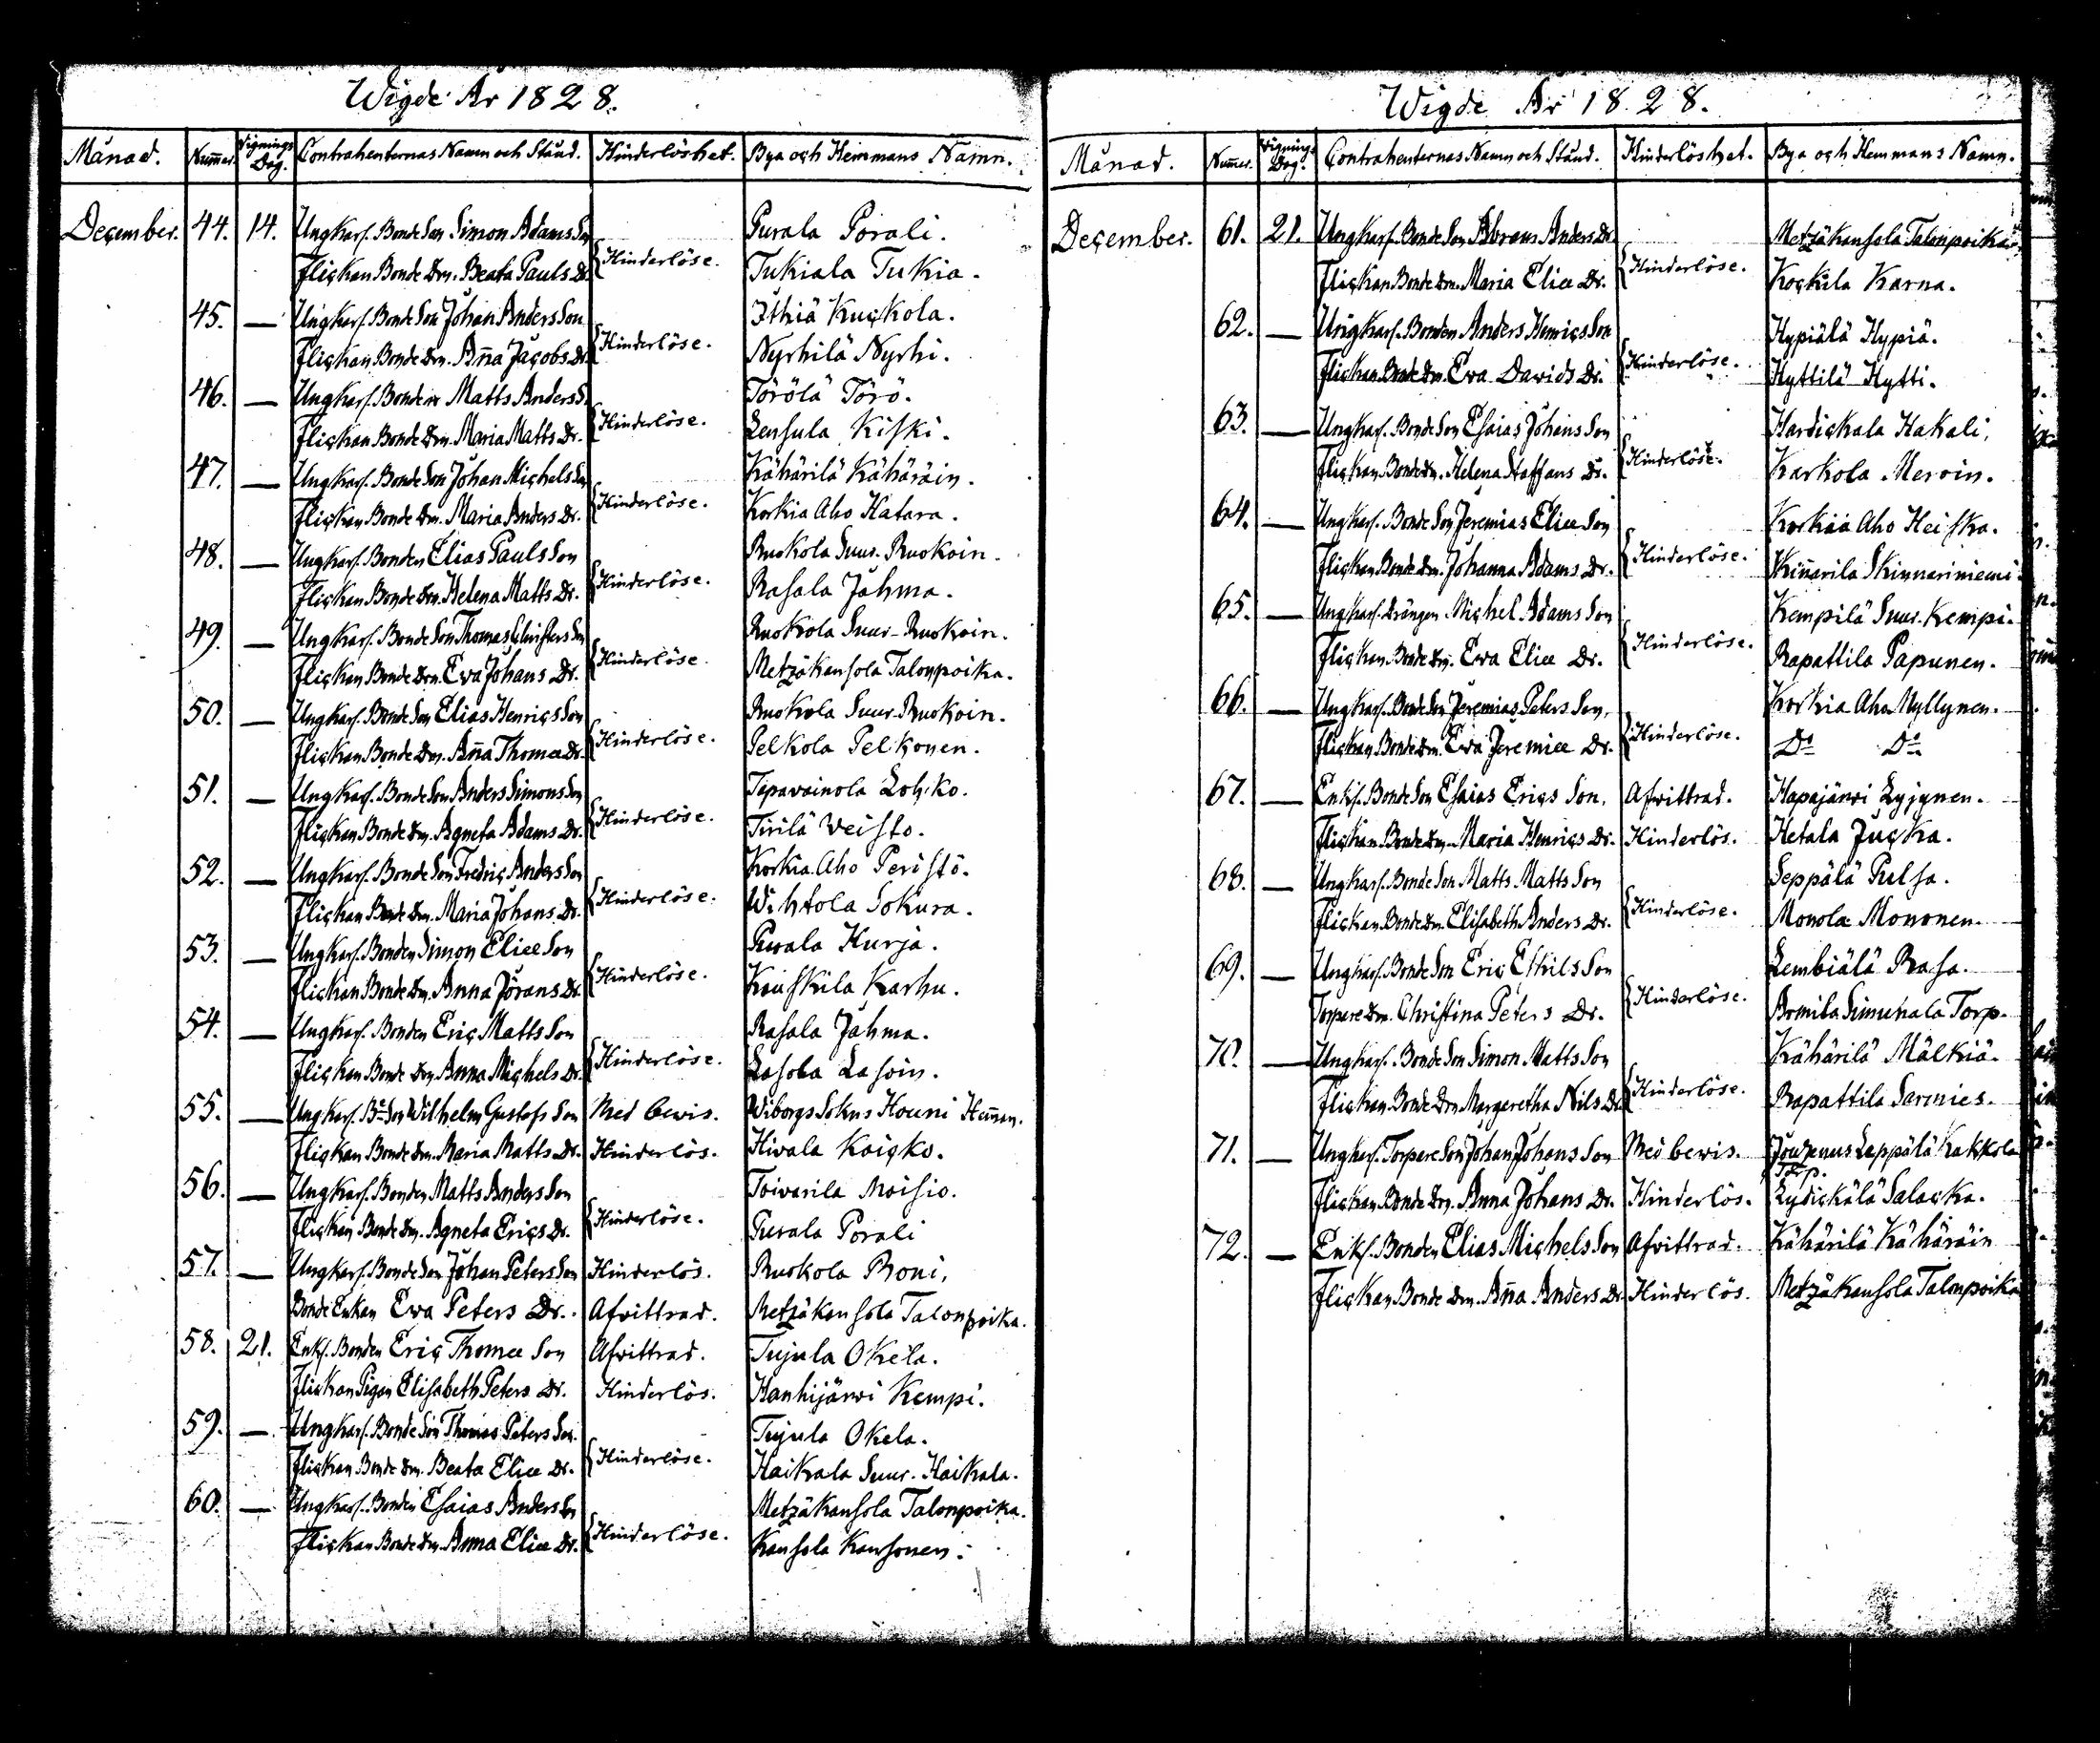 Wigde År 1828.
Månad. Num̄er. Vignings Dag. Contrahenternas Namn och Stånd. Hinderlöshet. Bya och Hemmans Namn.
December. 44. 14. Ungkarl. Bonde Son Simon Adams Son Purala Porali.
Hinderlöse.
Flickan Bonde Drn. Beata Pauls Dr. Tukiala Tukia.
45. — Ungkarl. Bonde Son Johan Anders Son Ithiä Kuckola.
Hinderlöse.
Flickan Bonde Drn. An̄a Jacobs Dr. Nyrhilä Nyrhi.
46. — Ungkarl. Bonden Matts Anders S. Törölä Törö.
Hinderlöse.
Flickan Bonde Drn. Maria Matts Dr. Lensula Kiski.
47. — Ungkarl. Bonde Son Johan Michels Son Kähärilä Kähäräin.
Hinderlöse.
Flickan Bonde Drn. Maria Anders Dr. Korkia Aho Hatara.
48. — Ungkarl. Bonden Elias Pauls Son Ruokola Suur-Ruokoin.
Hinderlöse.
Flickan Bonde Drn. Helena Matts Dr. Rasala Jahma.
49. — Ungkarl. Bonde Son Thomas Christers Son Ruokola Suur-Ruokoin.
Hinderlöse.
Flickan Bonde Drn. Eva Johans Dr. Metzäkansola Talonpoika.
50. — Ungkarl. Bonde Son Elias Henrics Son Ruokola Suur-Ruokoin.
Hinderlöse.
Flickan Bonde Drn. An̄a Thomæ Dr. Pelkola Pelkonen.
51. — Ungkarl. Bonde Son Anders Simons Son Tapavainola Lohko.
Hinderlöse.
Flickan Bonde Drn. Agneta Adams Dr. Tirilä Veisto.
52. — Ungkarl. Bonde Son Fredric Anders Son Korkia Aho Peristö.
Hinderlöse.
Flickan Bonde Drn. Maria Johans Dr. Wihtola Sokura.
53. — Ungkarl. Bonden Simon Eliæ Son Purala Kurja.
Hinderlöse.
Flickan Bonde Drn. Anna Jörans Dr. Kauskila Karhu.
54. — Ungkarl. Bonden Eric Matts Son Rasala Jahma.
Hinderlöse.
Flickan Bonde Drn. Anna Michels Dr. Lasola Lasoin.
55. — Ungkarl. Bde Son Wilhelm Gustafs Son Med bewis. Wiborgs Sokns Houni Hem̄an.
Flickan Bonde Drn. Maria Matts Dr. Hinderlös. Hivala Kaicko.
56. — Ungkarl. Bonden Matts Anders Son Toivarila Moisio.
Hinderlöse.
Flickan Bonde Drn. Agneta Erics Dr. Purala Porali
57. — Ungkarl. Bonde Son Johan Peters Son Hinderlös. Ruokola Roni.
Bonde Enkan Ewa Peters Dr. Afvittrad. Metzäkansola Talonpoika.
58. 21. Enkl. Bonden Eric Thomæ Son Afvittrad. Tujula Okela.
Flickan Pigan Elisabeth Peters Dr. Hinderlös. Hanhijärvi Kempi.
59. — Ungkarl. Bonde Son Thomas Peters Son. Tujula Okela.
Hinderlöse.
Flickan Bonde Drn. Beata Eliæ Dr. Haikala Suur-Haikala.
60. — Ungkarl. Bonden Esaias Anders Son Metzäkansola Talonpoika.
Hinderlöse.
Flickan Bonde Drn. Anna Eliæ Dr. Kansola Kansonen.
Wigde År 1828.
Månad. Num̄er. Vignings Dag. Contrahenternas Namn och Stånd. Hinderlöshet. Bya och Hemmans Namn.
December. 61. 21. Ungkarl. Bonde Son Abram Anders Dr. Metzäkansola Talonpoika.
Hinderlöse.
Flickan Bonde Drn. Maria Eliæ Dr. Kockila Karna.
62. — Ungkarl. Bonden Anders Henrics Son Hypiälä Hypiä.
Hinderlöse.
Flickan Bonde Drn. Eva Davids Dr. Hyttilä Hytti.
63. — Ungkarl. Bonde Son Esaias Johans Son Hardickala Hakali.
Hinderlöse.
Flickan Bonde Drn. Helena Staffans Dr. Karkola Meroin.
64. — Ungkarl. Bonde Son Jeremias Eliæ Son Korkia Aho Heiska.
Hinderlöse.
Flickan Bonde Drn. Johanna Adams Dr. Skin̄arila Skinnariniemi.
65. — Ungkarl. Drängen Michel Adams Son Kempilä Suur-Kempi.
Hinderlöse.
Flickan Bonde Drn. Ewa Eliæ Dr. Rapattila Papunen.
66. — Ungkarl. Bonde Son Jeremias Peters Son. Korkia Aho Myllynen.
Hinderlöse.
Flickan Bonde Drn. Ewa Jeremiæ Dr. Do Do
67. — Enkl. Bonde Son Esaias Erics Son. Afvittrad. Hapajärvi Lyjynen.
Flickan Bonde Drn. Maria Henrics Dr. Hinderlös. Hetala Jucka.
68. — Ungkarl. Bonde Son Matts Matts Son Seppälä Pulsa.
Hinderlöse.
Flickan Bonde Drn. Elisabeth Anders Dr. Monola Mononen.
69. — Ungkarl. Bonde Son Eric Eskils Son Lembiälä Rasa.
Hinderlöse.
Torpare Drn. Christina Peters Dr. Armila Simuhala Torp.
70. — Ungkarl. Bonde Son Simon Matts Son Kähärilä Mälkiä.
Hinderlöse.
Flickan Bonde Drn. Margaretha Nils Dr. Rapattila Sarmies.
71. — Ungkarl. Torpare Son Johan Johans Son Med bewis. Jouzenus Leppälä Kakkola
Torp.
Flickan Bonde Drn. Anna Johans Dr. Hinderlös. Lydickälä Salacka.
72. — Enkl. Bonden Elias Michels Son Afvittrad. Kähärilä Kähäräin
Flickan Bonde Drn. An̄a Anders Dr. Hinderlös. Metzäkansola Talonpoika